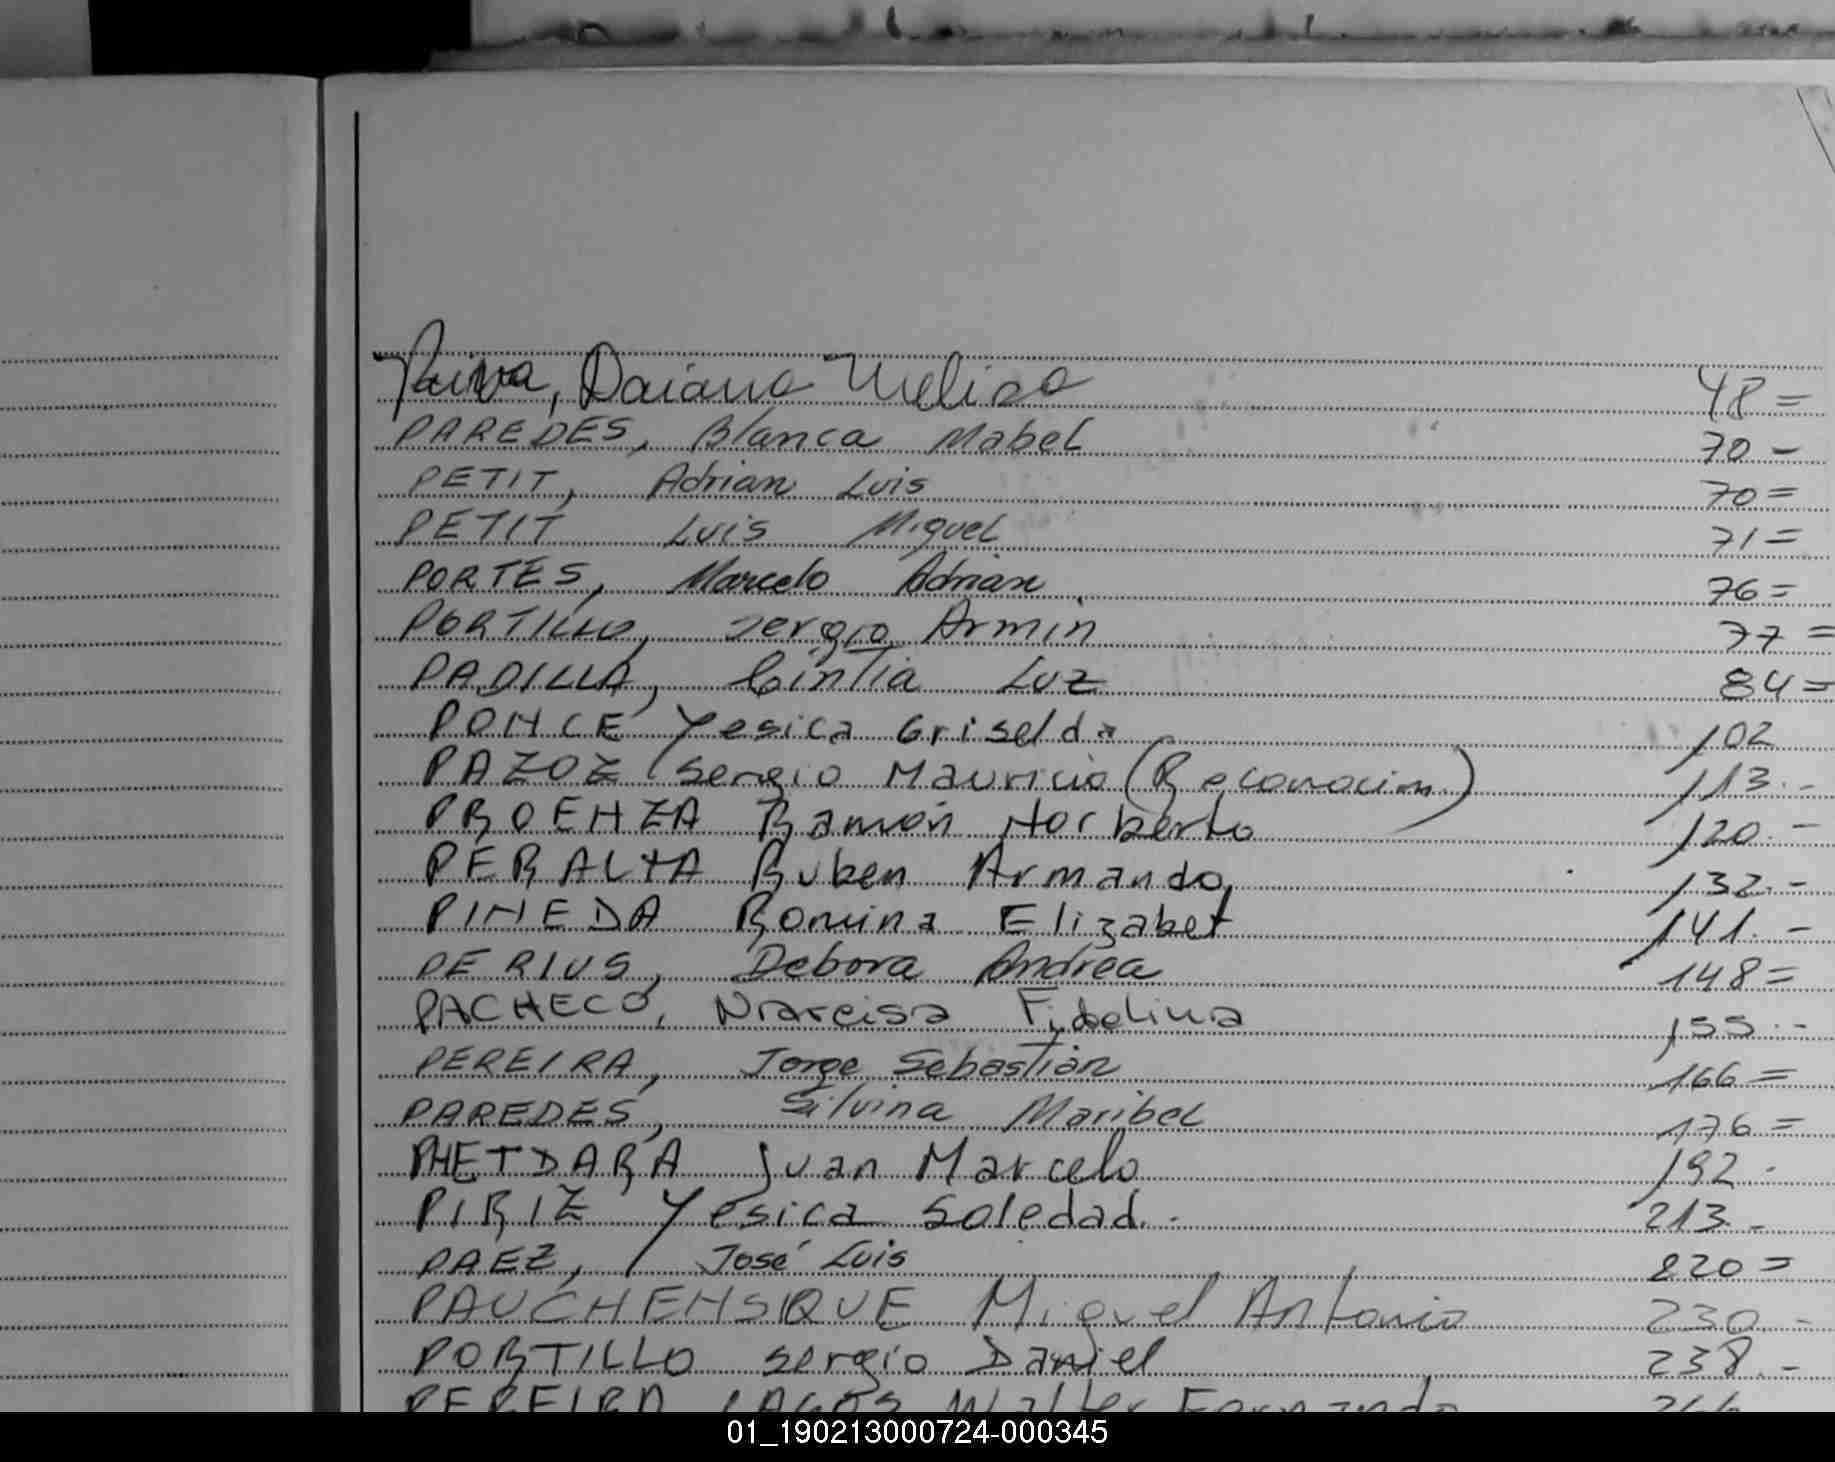 Paiva, Daiana Melisa 48=
PAREDES, Blanca Mabel 70-
PETIT, Adrian Luis 70=
PETIT Luis Miguel 71=
PORTES, Marcelo Adrian 76=
PORTILLO, Sergio Armin 77=
PADILLA, Cintia Luz 84=
PONCE Yesica Griselda 102
PAZOZ Sergio Mauricio (Reconocim.) 113.-
PROENZA Ramón Norberto 120.-
PERALTA Ruben Armando, 132.-
PINEDA Romina Elizabet 141.-
PERIUS, Debora Andrea 148=
PACHECO, Narcisa Fidelina 155.-
PEREIRA, Jorge Sebastián 166=
PAREDES, Silvina Maribel 176=
Juan Marcelo 192.
PIRIZ Yesica Soledad.- 213.-
PAEZ, José Luis 220=
Miguel Antonio 230.-
PORTILLO Sergio Daniel 238.-
PEREIRA LAGOS Walter Fernando
01_190213000724-000345